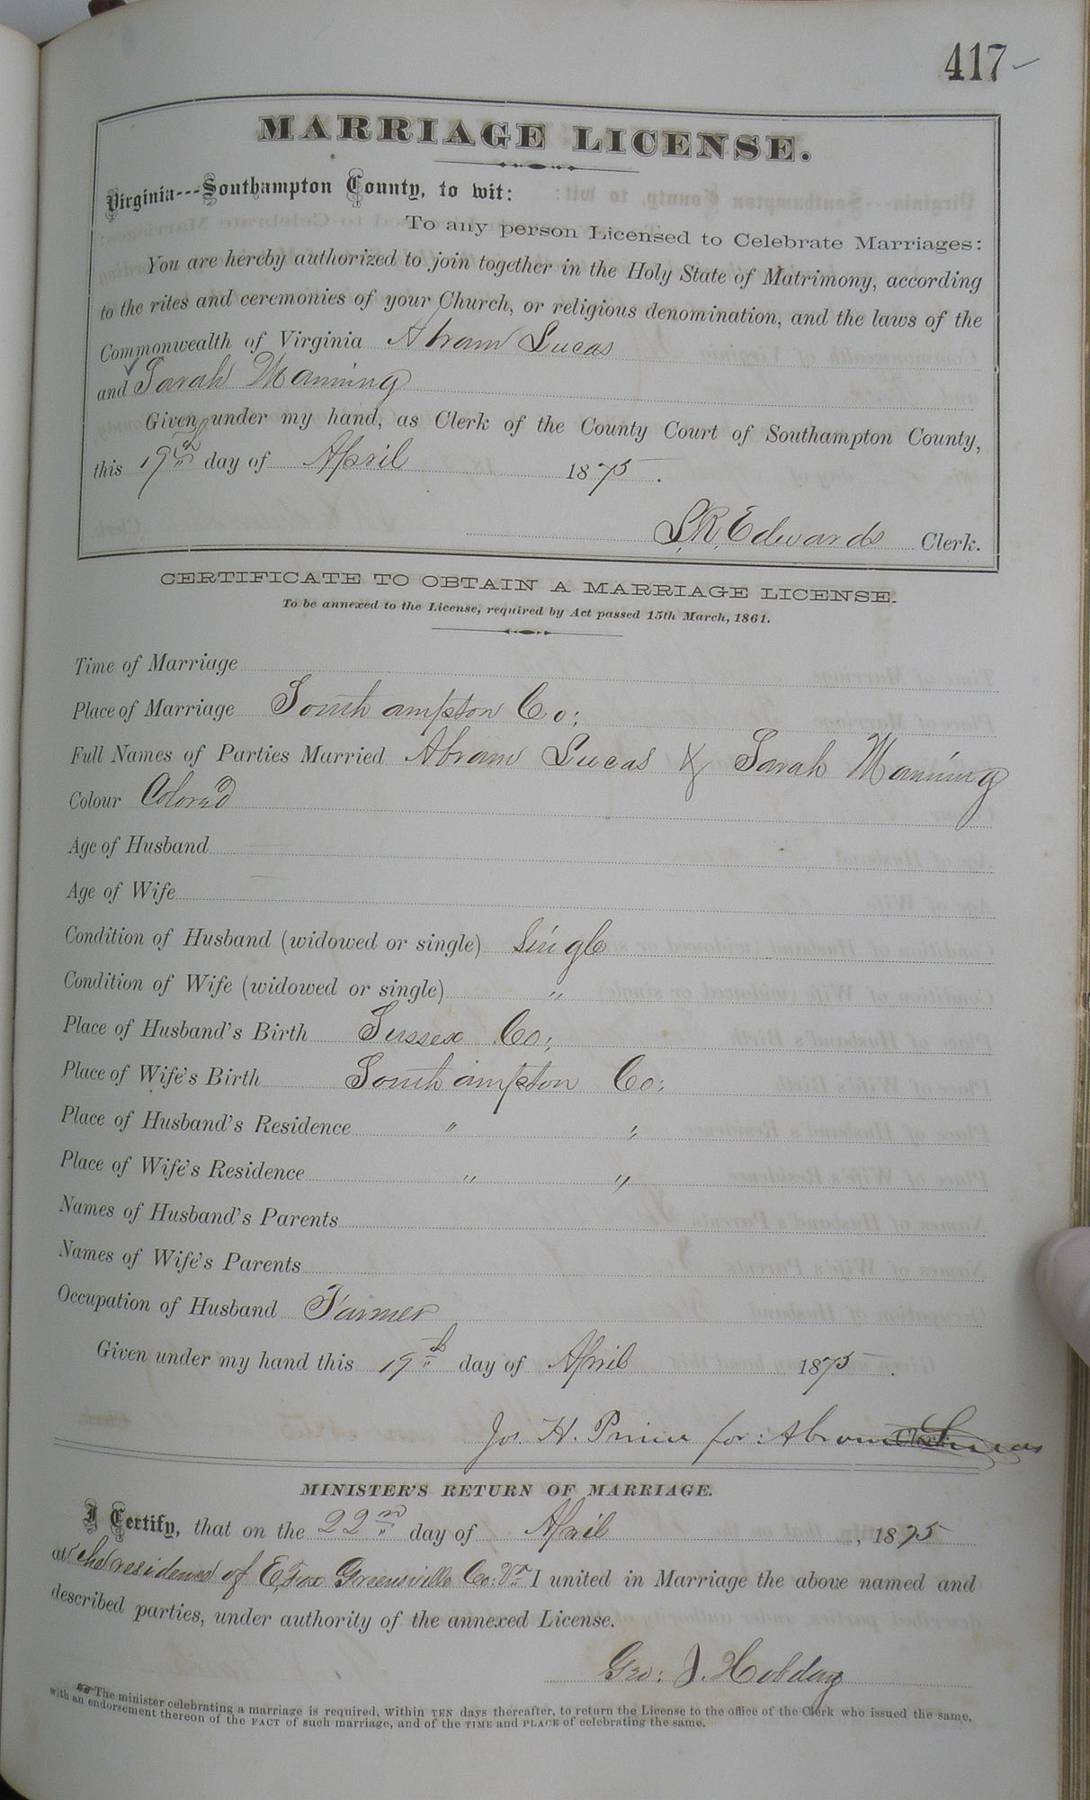 417
MARRIAGE LICENSE.
Virginia---Southampton County, to wit:
To any person Licensed to Celebrate Marriages:
You are hereby authorized to join together in the Holy State of Matrimony, according
to the rites and ceremonies of your Church, or religious denomination, and the laws of the
Commonwealth of Virginia Abram Lucas
and Sarah Manning
Given under my hand, as Clerk of the County Court of Southampton County,
this 19th day of April 1875.
L. R. Edwards Clerk.
CERTIFICATE TO OBTAIN A MARRIAGE LICENSE.
To be annexed to the License, required by Act passed 15th March, 1861.
Time of Marriage
Place of Marriage Southampton Co:
Full Names of Parties Married Abram Lucas & Sarah Manning
Colour Colored
Age of Husband
Age of Wife
Condition of Husband (widowed or single) Single
Condition of Wife (widowed or single) "
Place of Husband's Birth Sussex Co:
Place of Wife's Birth Southampton Co:
Place of Husband's Residence " "
Place of Wife's Residence " "
Names of Husband's Parents
Names of Wife's Parents
Occupation of Husband Farmer
Given under my hand this 19th day of April 1875.
Jos. H. Prince for: Abram Lucas
MINISTER'S RETURN OF MARRIAGE.
I Certify, that on the 22nd day of April, 1875
at the residence of E. Fox Greensville Co: Va I united in Marriage the above named and
described parties, under authority of the annexed License.
Geo: J. Hobday
The minister celebrating a marriage is required, within TEN days thereafter, to return the License to the office of the Clerk who issued the same,
with an endorsement thereon of the FACT of such marriage, and of the TIME and PLACE of celebrating the same.